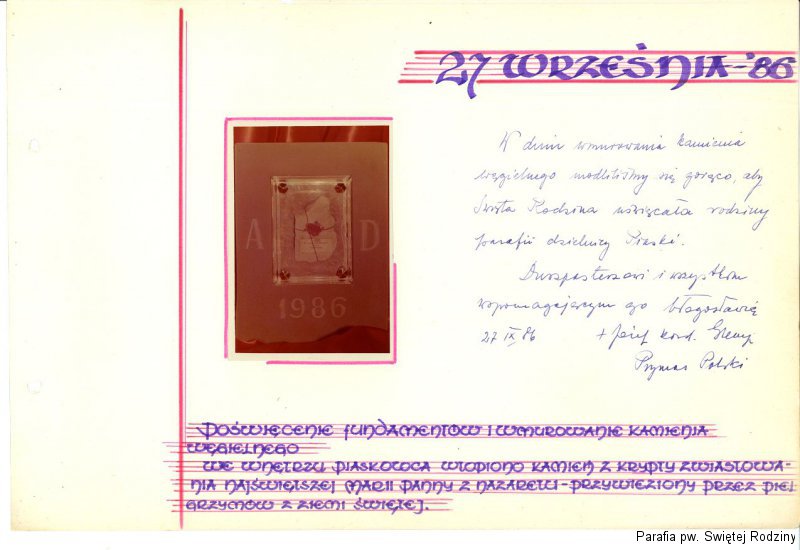 27 WRZEŚNIA-'86
W dniu wmurowania kamienia
węgielnego modliliśmy się gorąco, aby
Święta Rodzina uświęcała rodziny
parafii dzielnicy Piaski.
Duszpasterzowi i wszystkim
wspomagającym go błogosławię
27 IX 86 + Józef kard. Glemp
Prymas Polski
A D
1986
POŚWIĘCENIE FUNDAMENTÓW I WMUROWANIE KAMIENIA
WĘGIELNEGO
WE WNĘTRZU PIASKOWCA WTOPIONO KAMIEŃ Z KRYPTY ZWIASTOWA-
NIA NAJŚWIĘTSZEJ MARII PANNY Z NAZARETU - PRZYWIEZIONY PRZEZ PIEL
GRZYMÓW Z ZIEMI ŚWIĘTEJ.
Parafia pw. Swiętej Rodziny